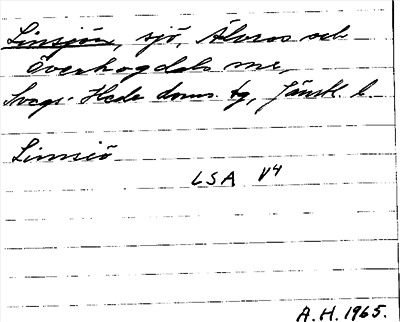 Linsjön, sjö, Älvros och
Överhogdals snr,
Svegs-Hede doms. tg, Jämtl. l.
Linnsjö
LSA V4
A.H. 1965.